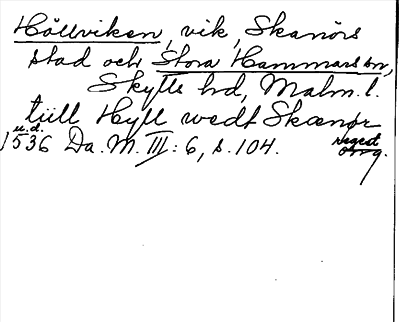 Höllviken, vik, Skanörs
stad och Stora Hammars sn,
Skytts hd, Malm. l.
tiill Hyll wedt Skanør
u.d.
1536 Da. M. III: 6, s. 104. regest
orig.